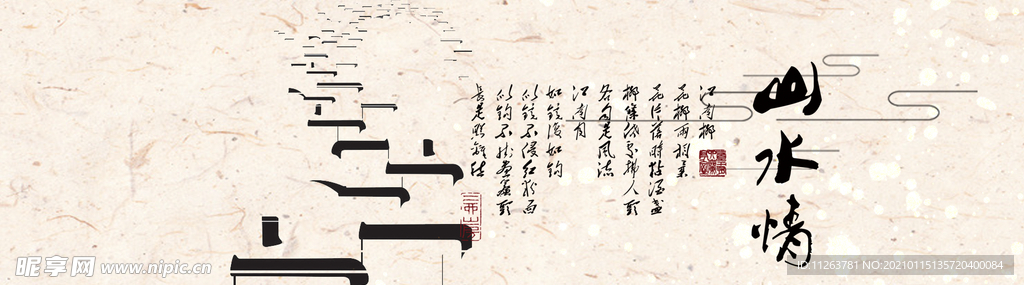 山水情
江南柳
花柳两相柔
花片落时黏酒盏
柳条低处拂人头
各自是风流
江南月
如镜复如钩
似镜不侵红粉面
似钩不挂画帘头
长是照离愁
昵享网 www.nipic.cn
ID:11263781 NO:20210115135720400084